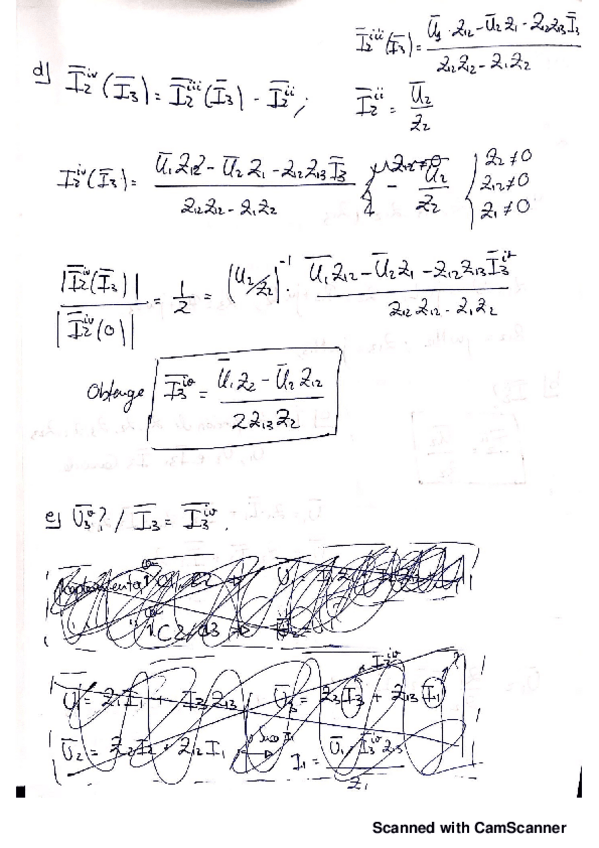 I̅₂ⁱⁱⁱ(I̅₃) = (U̅₁·Z₁₂ − U̅₂Z₁ − Z₁₂Z₁₃I̅₃) / (Z₁₂Z₁₂ − Z₁Z₂)
d) I̅₂ⁱᵛ(I̅₃) = I̅₂ⁱⁱⁱ(I̅₃) − I̅₂ⁱⁱ ; I̅₂ⁱⁱ = U̅₂ / Z₂
I₂ⁱᵛ(I̅₃) = (U̅₁Z₁₂ − U̅₂Z₁ − Z₁₂Z₁₃I̅₃) / (Z₁₂Z₁₂ − Z₁Z₂) − U̅₂ / Z₂ { Z₂ ≠ 0
Z₁₂ ≠ 0
Z₁ ≠ 0
|I̅₂ⁱᵛ(I̅₃)| / |I̅₂ⁱᵛ(0)| = 1/2 = (U₂/Z₂)⁻¹ · (U̅₁Z₁₂ − U̅₂Z₁ − Z₁₂Z₁₃I̅₃ⁱᵛ) / (Z₁₂Z₁₂ − Z₁Z₂)
Obtengo I̅₃ⁱᵛ = (U̅₁Z₂ − U̅₂Z₁₂) / (2Z₁₃Z₂)
e) U̅₃ᵛ? / I̅₃ = I̅₃ⁱᵛ.
U̅₁ = Z₁I̅₁ + I̅₃Z₁₃ U̅₃ = Z₃I̅₃ + Z₁₃I̅₁
U̅₂ = Z₂I̅₂ + Z₁₂I₁ I₁ = (U̅₁ − I̅₃ⁱᵛZ₁₃) / Z₁
Scanned with CamScanner